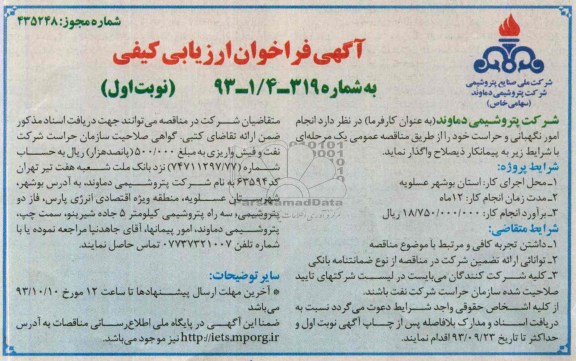 شماره مجوز: ۴۳۵۲۴۸
آگهی فراخوان ارزیابی کیفی
به شماره ۳۱۹-۱/۴-۹۳ (نوبت اول)
شرکت ملی صنایع پتروشیمی
شرکت پتروشیمی دماوند
(سهامی خاص)
شرکت پتروشیمی دماوند (به عنوان کارفرما) در نظر دارد انجام
امور نگهبانی و حراست خود را از طریق مناقصه عمومی یک مرحله‌ای
با شرایط زیر به پیمانکار ذیصلاح واگذار نماید.
شرایط پروژه:
۱-محل اجرای کار: استان بوشهر عسلویه
۲-مدت زمان انجام کار: ۱۲ماه
۳-برآورد انجام کار: ۱۸/۷۵۰/۰۰۰/۰۰۰ ریال
شرایط متقاضی:
۱-داشتن تجربه کافی و مرتبط با موضوع مناقصه
۲-توانائی ارائه تضمین شرکت در مناقصه از نوع ضمانتنامه بانکی
۳-کلیه شرکت کنندگان می‌بایست در لیست شرکتهای تایید
صلاحیت شده سازمان حراست شرکت نفت باشند.
از کلیه اشخاص حقوقی واجد شرایط دعوت می‌گردد نسبت به
دریافت اسناد و مدارک بلافاصله پس از چاپ آگهی نوبت اول و
حداکثر تا تاریخ ۹۳/۰۹/۲۳ اقدام نمایند.
متقاضیان شرکت در مناقصه می‌توانند جهت دریافت اسناد مذکور
ضمن ارائه تقاضای کتبی، گواهی صلاحیت سازمان حراست شرکت
نفت و فیش واریزی به مبلغ ۵۰۰/۰۰۰ (پانصدهزار) ریال به حساب
شماره (۷۴۷۱۱۲۹۷/۷۷) نزد بانک ملت شعبه هفت تیر تهران
کد ۶۳۵۹۴ به نام شرکت پتروشیمی دماوند، به آدرس بوشهر،
شهرستان عسلویه، منطقه ویژه اقتصادی انرژی پارس، فاز دو
پتروشیمی، سه راه پتروشیمی کیلومتر ۵ جاده شیرینو، سمت چپ،
پتروشیمی دماوند، امور پیمانها، آقای جاهدنیا مراجعه نموده یا با
شماره تلفن ۰۷۷۳۷۳۲۱۰۰۷ تماس حاصل نمایند.
سایر توضیحات:
* آخرین مهلت ارسال پیشنهادها تا ساعت ۱۲ مورخ ۹۳/۱۰/۱۰
می‌باشد
ضمنا این آگهی در پایگاه ملی اطلاع‌رسانی مناقصات به آدرس
http://iets.mporg.ir نیز موجود می‌باشد.
ParsNamadData